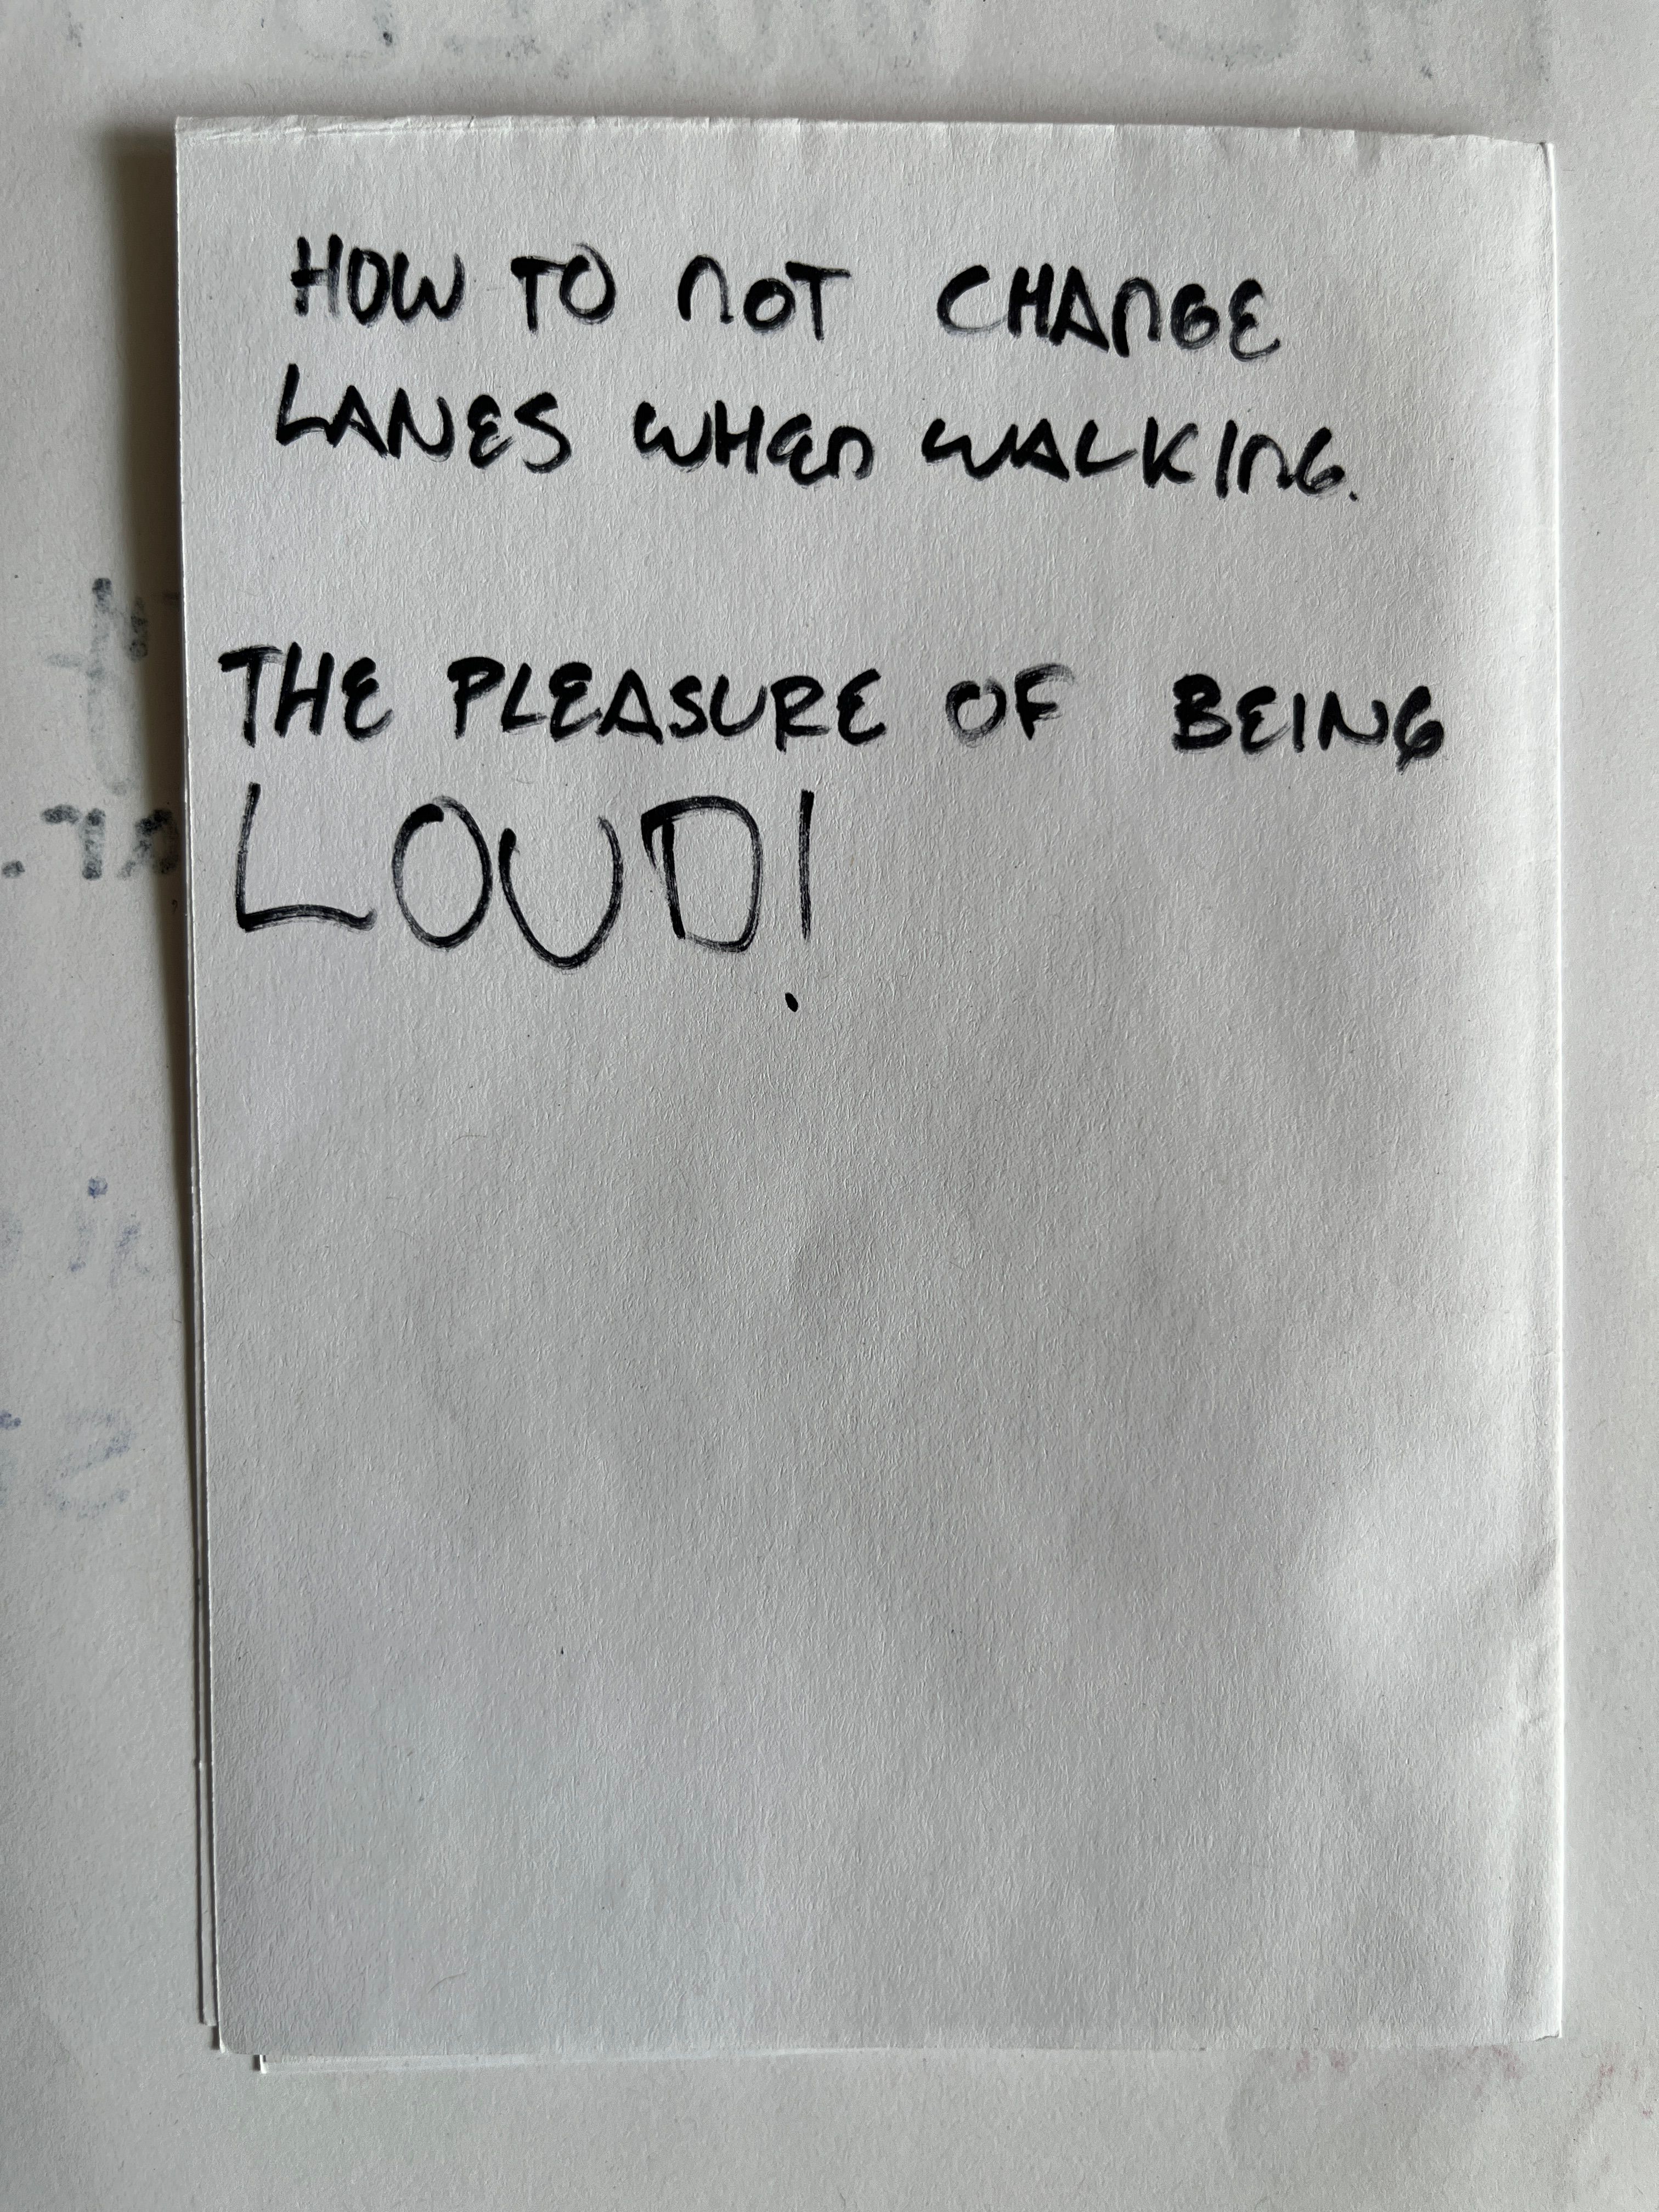 HOW TO NOT CHANGE
LANES WHEN WALKING.
THE PLEASURE OF BEING
LOUD!